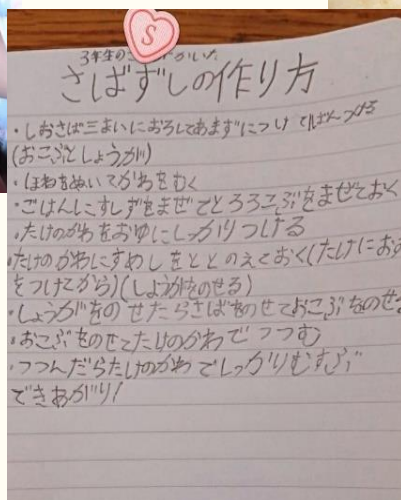 3年生の
さばずしの作り方
・しおさば三まいにおろしてあまずにつけ
(おこぶとしょうが)
・ほねをぬいてかわをむく
・ごはんにすしずをまぜてとろろこぶをまぜておく
・たけのかわをおゆにしっかりつける
・たけのかわにすめしをととのえておく(たけにおす
をつけてから)(しょうがをのせる)
・しょうがをのせたらさばをのせておこぶをのせ
・おこぶをのせてたけのかわでつつむ
・つつんだらたけのかわでしっかりむすぶ
できあがり!
S